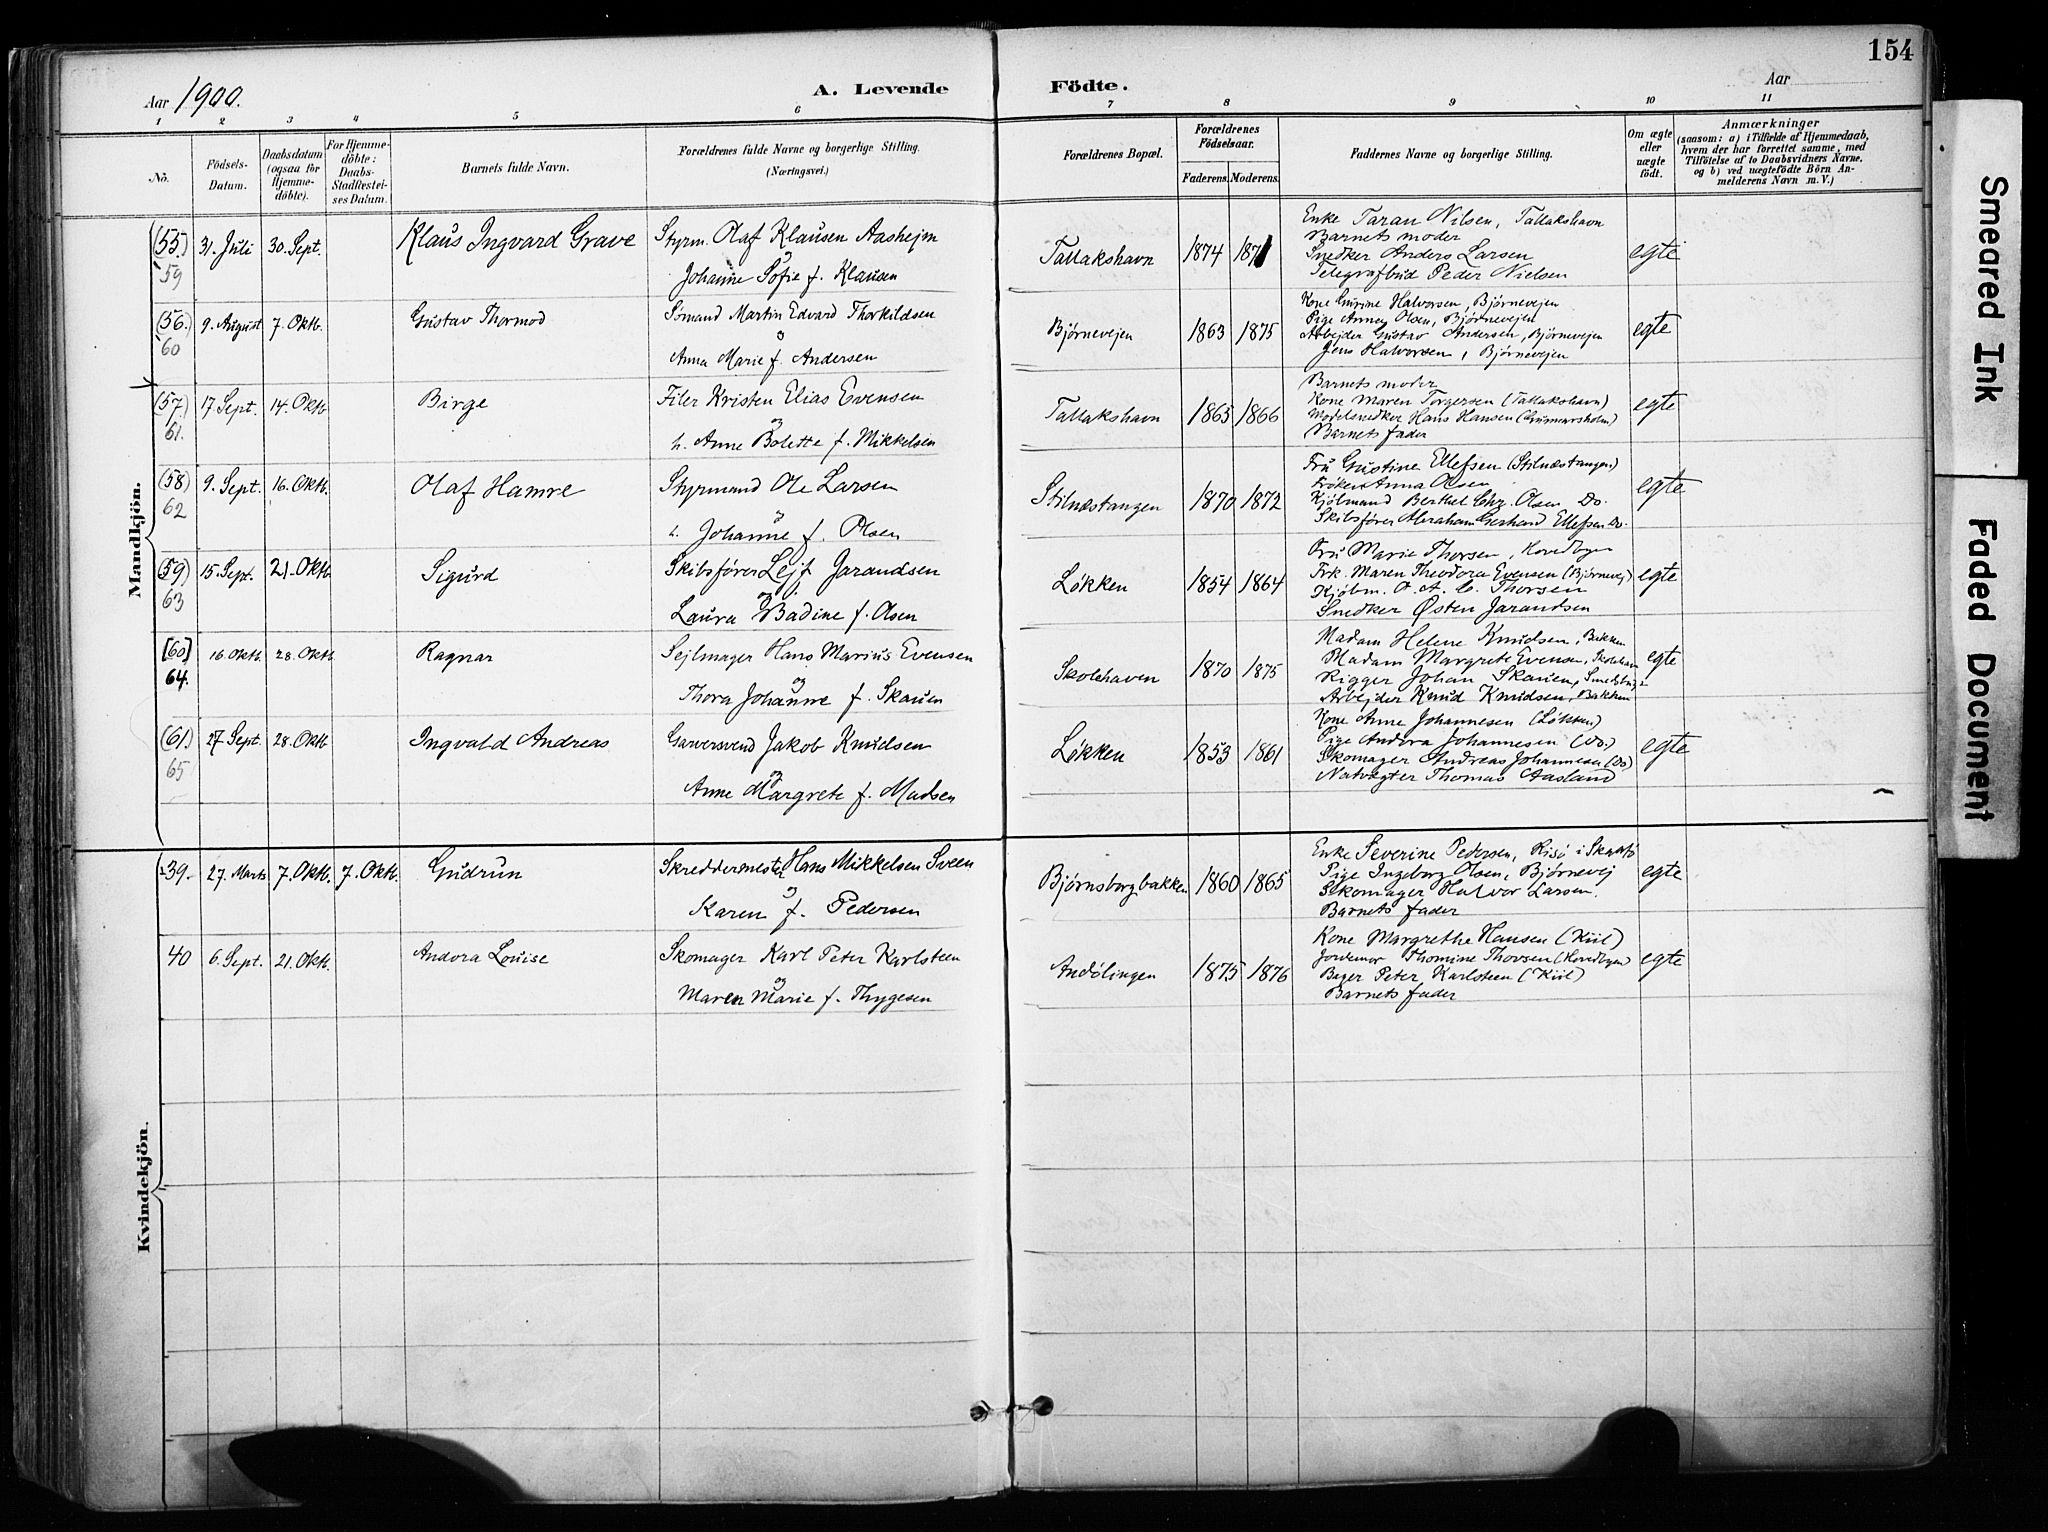 154
Aar 1900. A. Levende Födte. Aar
1 2 3 4 5 6 7 8 9 10 11
No. Födsels-Datum. Daabsdatum (ogsaa for Hjemmedöbte). For Hjemmedöbte: Daabs-Stadfæstelses Datum. Barnets fulde Navn. Forældrenes fulde Navne og borgerlige Stilling. (Næringsvei.) Forældrenes Bopæl. Forældrenes Födselsaar. Faderens. Moderens. Faddernes Navne og borgerlige Stilling. Om ægte eller uægte födt. Anmærkninger (saasom: a) i Tilfælde af Hjemmedaab, hvem der har forrettet samme, med Tilföielse af to Daabsvidners Navne, og b) ved uægtefödte Börn Anmelderens Navn m. V.)
Mandkjön.
(55) 59 31. Juli 30. Sept. Klaus Ingvard Grave Styrm. Olaf Klausen Aasheim
Johanne Sofie f. Klausen
Tallakshavn 1874 1871
Enke Taran Nilsen, Tallakshavn
Barnets moder
Snedker Anders Larsen
Telegrafbud Peder Nielsen
egte
(56.) 60 9. August 7. Oktb. Gustav Thormod Sömand Martin Edvard Thorkildsen
Anna Marie f. Andersen
Bjørnevejen 1863 1875
Kone Gurine Halvorsen, Bjørnevejen
Pige Anna Olsen, Bjørnevejen
Arbejder Gustav Andersen, Bjørnevejen
Jens Halvorsen, Bjørnevejen
egte
(57) 61. 17. Sept. 14. Oktb Birge Filer Kristen Elias Evensen
h. Anne Bolette f. Mikkelsen
Tallakshavn 1865 1866
Barnets moder
Kone Maren Torgersen (Tallakshavn)
Modelsnedker Hans Hansen (Gunnarsholm)
Barnets fader
egte
(58) 62 9. Sept. 16. Oktb. Olaf Hamre Styrmand Ole Larsen
h. Johanne f. Olsen
Stilnæstangen 1870 1872
Fru Gustine Ellefsen (Stilnæstangen)
Frøken Anna Olsen
Kjöbmand Berthel Chr. Olsen Do.
Skibsfører Abraham Gerhard Ellefsen Do.
egte
(59) 63 15. Sept. 21. Oktb Sigurd Skibsfører Lejf Jarandsen
Laura Badine f. Olsen
Løkken 1854 1864
Fru Marie Thorsen, Hovedbyen
Frk. Maren Theodora Evensen (Bjørnevej)
Kjøbm. O. A. C. Thorsen
Snedker Østen Jarandsen
egte
[60] 64. 16. Oktb. 28. Oktb Ragnar Sejlmager Hans Marius Evensen
Thora Johanne f. Skauen
Skolehaven 1870 1875
Madam Helene Knudsen, Bakken
Madam Margrete Evensen, Skolehavn
Rigger Johan Skauen,
Arbejder Knud Knudsen, Bakken
egte
(61.) 65 27. Sept. 28. Oktb Ingvald Andreas Garversvend Jakob Knudsen
Anne Margrete f. Madsen
Løkken 1853 1861
Kone Anne Johannesen (Løkken)
Pige Andora Johannesen (Do.)
Skomager Andreas Johannesen (Do)
Natvægter Thomas Aasland
egte
Kvindekjön.
39. 27. Marts 7. Oktb. 7. Oktb. Gudrun Skreddermester Hans Mikkelsen Sveen
Karen f. Pedersen
Bjørnsborgbakken 1860 1865
Enke Severine Pedersen, Risö i Skaatö
Pige Ingeborg Olsen, Bjørnevej
Skomager Halvor Larsen.
Barnets fader
egte
40 6. Sept. 21. Oktb. Andora Louise Skomager Karl Peter Karlsteen
Maren Marie f. Thygesen
Andölingen 1875 1876
Kone Margrethe Hansen (Kiil)
Jordemor Thomine Thorsen (Hovedbyen)
Bager Peter Karlsteen (Kiil)
Barnets fader
egte
Smeared Ink
Faded Document